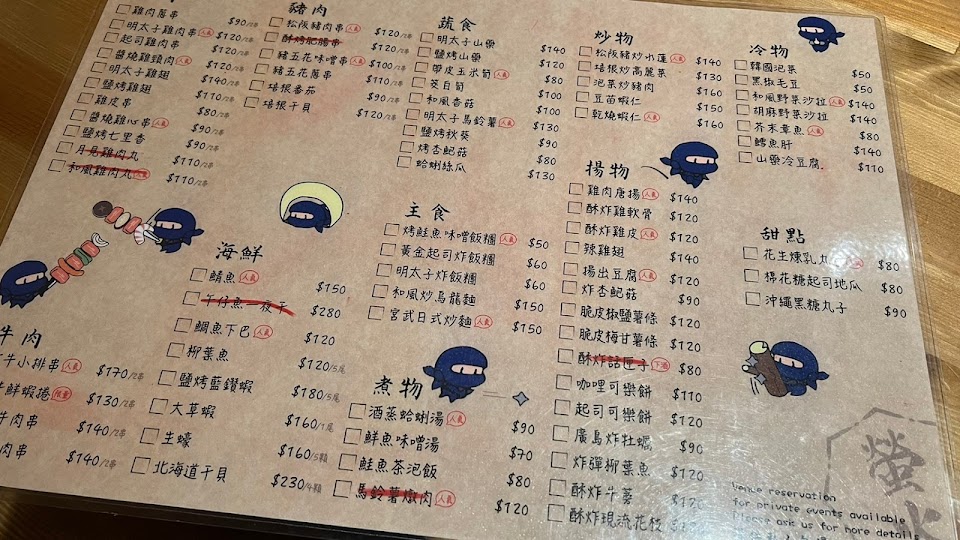 雞肉蔥串 $90/2串
明太子雞肉串 人氣 $120/2串
起司雞肉串 $120/2串
醬燒雞頸肉 人氣 $120/2串
明太子雞翅 $140/2串
鹽烤雞翅 $110/2串
雞皮串 $80/2串
醬燒雞心串 人氣 $90/2串
鹽烤七里香 $90/2串
月見雞肉丸 $110/2串
和風雞肉丸 $110/2串
豬肉
松阪豬肉串 人氣 $120/2串
酥烤肥腸串 $120/2串
豬五花味噌串 人氣 $100/2串
豬五花蔥串 $110/2串
培根番茄 $90/2串
培根干貝 $120/2串
蔬食
明太子山藥 $140
鹽烤山藥 $120
帶皮玉米筍 人氣 $80
茭白筍 $100
和風香菇 $100
明太子馬鈴薯 人氣 $130
鹽烤秋葵 $90
烤杏鮑菇 $80
蛤蜊絲瓜 $130
炒物
松阪豬炒水蓮 人氣 $140
培根炒高麗菜 $130
泡菜炒豬肉 $160
豆苗蝦仁 $150
乾燒蝦仁 人氣 $160
冷物
韓國泡菜 $50
黑椒毛豆 $50
和風野菜沙拉 人氣 $140
胡麻野菜沙拉 $140
芥末章魚 人氣 $80
鱈魚肝 $140
山藥冷豆腐 $110
揚物
雞肉唐揚 人氣 $140
酥炸雞軟骨 $120
酥炸雞皮 人氣 $120
辣雞翅 $140
揚出豆腐 人氣 $120
炸杏鮑菇 $90
脆皮椒鹽薯條 $120
脆皮梅甘薯條 $120
酥炸話匣子 下酒 $80
咖哩可樂餅 $110
起司可樂餅 $120
廣島炸牡蠣 $90
炸彈柳葉魚 $120
酥炸牛蒡 $120
酥炸現流花枝
甜點
花生煉乳丸 $80
棉花糖起司地瓜 $80
沖繩黑糖丸子 $90
主食
烤鮭魚味噌飯糰 人氣 $50
黃金起司炸飯糰 $60
明太子炸飯糰 $60
和風炒烏龍麵 $150
宮武日式炒麵 人氣 $150
海鮮
鯖魚 人氣 $150
午仔魚一夜干 $280
鯛魚下巴 人氣 $120
柳葉魚 $120/5尾
鹽烤藍鑽蝦 $180/5尾
大草蝦 $160/1尾
生蠔 $160/5顆
北海道干貝 $230/4顆
牛肉
牛小排串 人氣 $170/2串
鮮蝦捲 限量 $130/2串
牛肉串 $140/2串
肉串 $140/2串
煮物
酒蒸蛤蜊湯 人氣 $90
鮮魚味噌湯 $70
鮭魚茶泡飯 $80
馬鈴薯燉肉 人氣 $120
螢火
Venue reservation
for private events available
Please ask us for more details